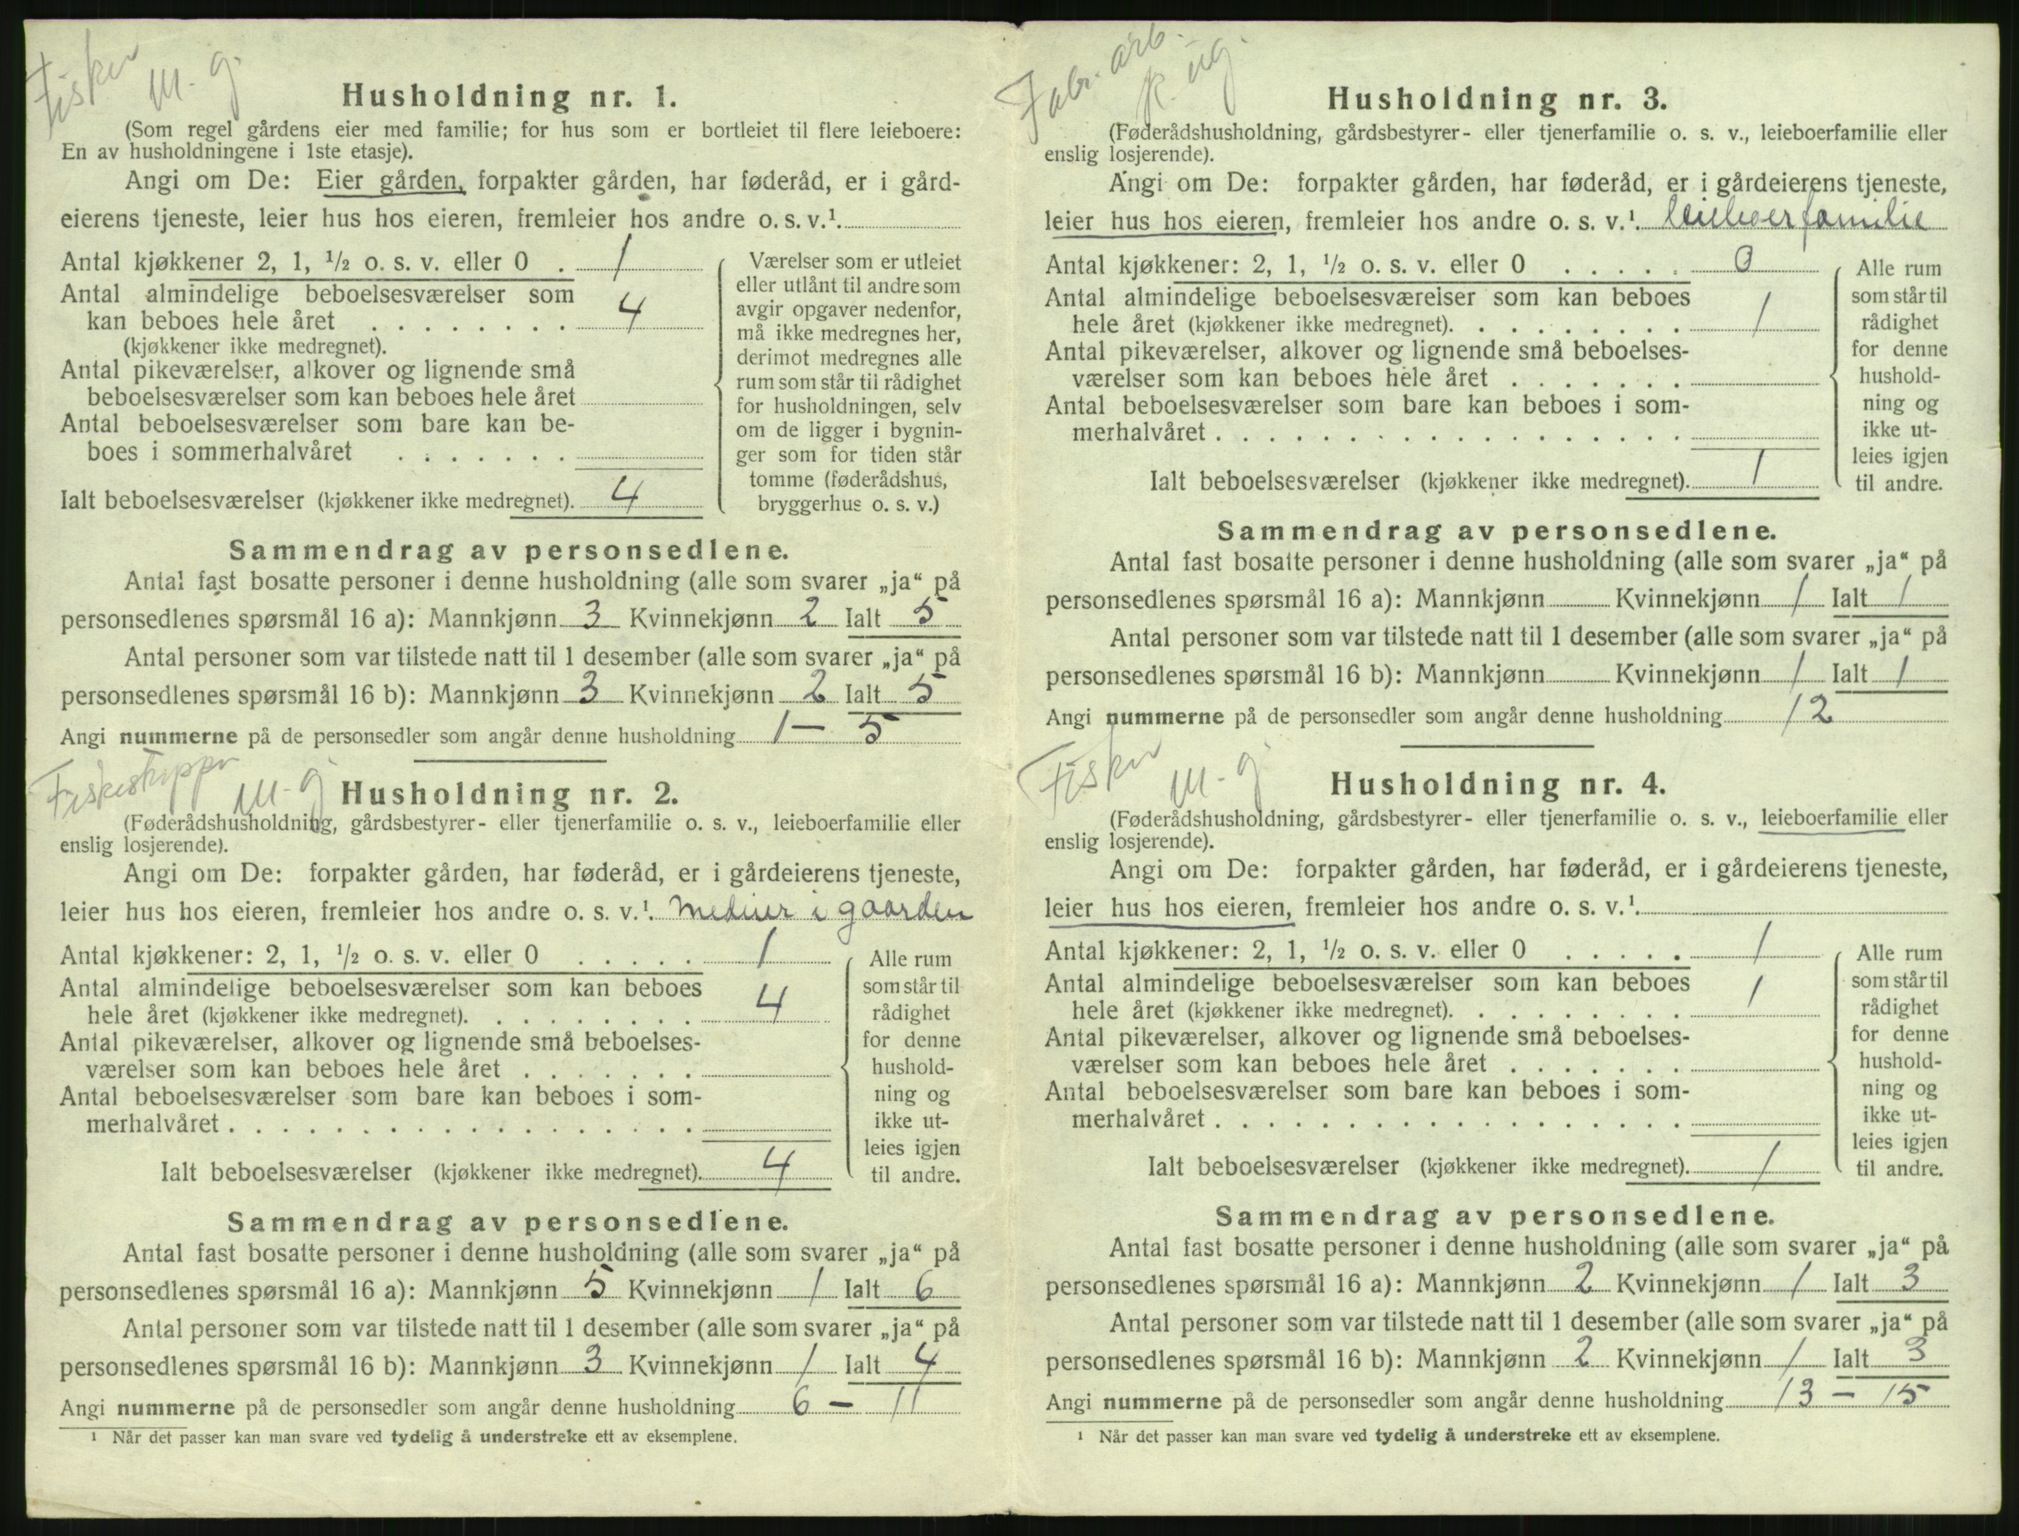 Fisker
m. g.
Husholdning nr. 1.
(Som regel gårdens eier med familie; for hus som er bortleiet til flere leieboere:
En av husholdningene i 1ste etasje).
Angi om De: Eier gården, forpakter gården, har føderåd, er i gård-
eierens tjeneste, leier hus hos eieren, fremleier hos andre o. s. v.¹
Antal kjøkkener 2, 1, ½ o. s. v. eller 0 . 1
Antal almindelige beboelsesværelser som
kan beboes hele året . . . . . . . . 4
(kjøkkener ikke medregnet).
Antal pikeværelser, alkover og lignende små
beboelsesværelser som kan beboes hele året
Antal beboelsesværelser som bare kan be-
boes i sommerhalvåret . . . . . . .
Ialt beboelsesværelser (kjøkkener ikke medregnet). 4
Værelser som er utleiet
eller utlånt til andre som
avgir opgaver nedenfor,
må ikke medregnes her,
derimot medregnes alle
rum som står til rådighet
for husholdningen, selv
om de ligger i bygnin-
ger som for tiden står
tomme (føderådshus,
bryggerhus o. s. v.)
Sammendrag av personsedlene.
Antal fast bosatte personer i denne husholdning (alle som svarer „ja“ på
personsedlenes spørsmål 16 a): Mannkjønn 3 Kvinnekjønn 2 Ialt 5
Antal personer som var tilstede natt til 1 desember (alle som svarer „ja“ på
personsedlenes spørsmål 16 b): Mannkjønn 3 Kvinnekjønn 2 Ialt 5
Angi nummerne på de personsedler som angår denne husholdning 1 – 5
m. g
Husholdning nr. 2.
(Føderådshusholdning, gårdsbestyrer- eller tjenerfamilie o. s. v., leieboerfamilie eller
enslig losjerende).
Angi om De: forpakter gården, har føderåd, er i gårdeierens tjeneste,
leier hus hos eieren, fremleier hos andre o. s. v.¹ medeier i gaarden
Antal kjøkkener: 2, 1, ½ o. s. v. eller 0 . . . . . 1
Antal almindelige beboelsesværelser som kan beboes
hele året (kjøkkener ikke medregnet). . . . . . . . . 4
Antal pikeværelser, alkover og lignende små beboelses-
værelser som kan beboes hele året . . . . . . .
Antal beboelsesværelser som bare kan beboes i som-
merhalvåret . . . . . . . . . . . . . . . . . .
Ialt beboelsesværelser (kjøkkener ikke medregnet). 4
Alle rum
som står til
rådighet
for denne
hushold-
ning og
ikke ut-
leies igjen
til andre.
Sammendrag av personsedlene.
Antal fast bosatte personer i denne husholdning (alle som svarer „ja“ på
personsedlenes spørsmål 16 a): Mannkjønn 5 Kvinnekjønn 1 Ialt 6
Antal personer som var tilstede natt til 1 desember (alle som svarer „ja“ på
personsedlenes spørsmål 16 b): Mannkjønn 3 Kvinnekjønn 1 Ialt 4
Angi nummerne på de personsedler som angår denne husholdning 6 – 11
¹ Når det passer kan man svare ved tydelig å understreke ett av eksemplene.
Fabr. arb.
k. ug.
Husholdning nr. 3.
(Føderådshusholdning, gårdsbestyrer- eller tjenerfamilie o. s. v., leieboerfamilie eller
enslig losjerende).
Angi om De: forpakter gården, har føderåd, er i gårdeierens tjeneste,
leier hus hos eieren, fremleier hos andre o. s. v.¹ leieboerfamilie
Antal kjøkkener: 2, 1, ½ o. s. v. eller 0 . . . . . 0
Antal almindelige beboelsesværelser som kan beboes
hele året (kjøkkener ikke medregnet). . . . . . . . . 1
Antal pikeværelser, alkover og lignende små beboelses-
værelser som kan beboes hele året . . . . . . .
Antal beboelsesværelser som bare kan beboes i som-
merhalvåret . . . . . . . . . . . . . . . . . .
Ialt beboelsesværelser (kjøkkener ikke medregnet). 1
Alle rum
som står til
rådighet
for denne
hushold-
ning og
ikke ut-
leies igjen
til andre.
Sammendrag av personsedlene.
Antal fast bosatte personer i denne husholdning (alle som svarer „ja“ på
personsedlenes spørsmål 16 a): Mannkjønn Kvinnekjønn 1 Ialt 1
Antal personer som var tilstede natt til 1 desember (alle som svarer „ja“ på
personsedlenes spørsmål 16 b): Mannkjønn Kvinnekjønn 1 Ialt 1
Angi nummerne på de personsedler som angår denne husholdning 12
Fisker
m. g.
Husholdning nr. 4.
(Føderådshusholdning, gårdsbestyrer- eller tjenerfamilie o. s. v., leieboerfamilie eller
enslig losjerende).
Angi om De: forpakter gården, har føderåd, er i gårdeierens tjeneste,
leier hus hos eieren, fremleier hos andre o. s. v.¹
Antal kjøkkener: 2, 1, ½ o. s. v. eller 0 . . . . . 1
Antal almindelige beboelsesværelser som kan beboes
hele året (kjøkkener ikke medregnet). . . . . . . . . 1
Antal pikeværelser, alkover og lignende små beboelses-
værelser som kan beboes hele året . . . . . . .
Antal beboelsesværelser som bare kan beboes i som-
merhalvåret . . . . . . . . . . . . . . . . . .
Ialt beboelsesværelser (kjøkkener ikke medregnet). 1
Alle rum
som står til
rådighet
for denne
hushold-
ning og
ikke ut-
leies igjen
til andre.
Sammendrag av personsedlene.
Antal fast bosatte personer i denne husholdning (alle som svarer „ja“ på
personsedlenes spørsmål 16 a): Mannkjønn 2 Kvinnekjønn 1 Ialt 3
Antal personer som var tilstede natt til 1 desember (alle som svarer „ja“ på
personsedlenes spørsmål 16 b): Mannkjønn 2 Kvinnekjønn 1 Ialt 3
Angi nummerne på de personsedler som angår denne husholdning 13 – 15
¹ Når det passer kan man svare ved tydelig å understreke ett av eksemplene.